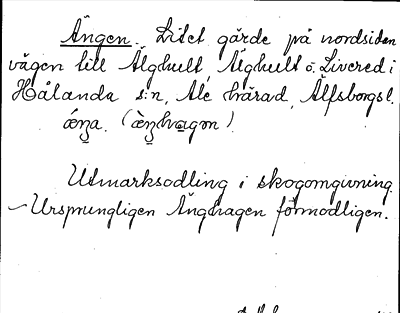 Ängen. Litet gärde på nordsidan
vägen till Älghult, Älghult o. Livered i
Hålanda s:n, Ale härad, Älfsborgs l.
Utmarksodling i skogomgivning.
Ursprungligen Änghagen förmodligen.